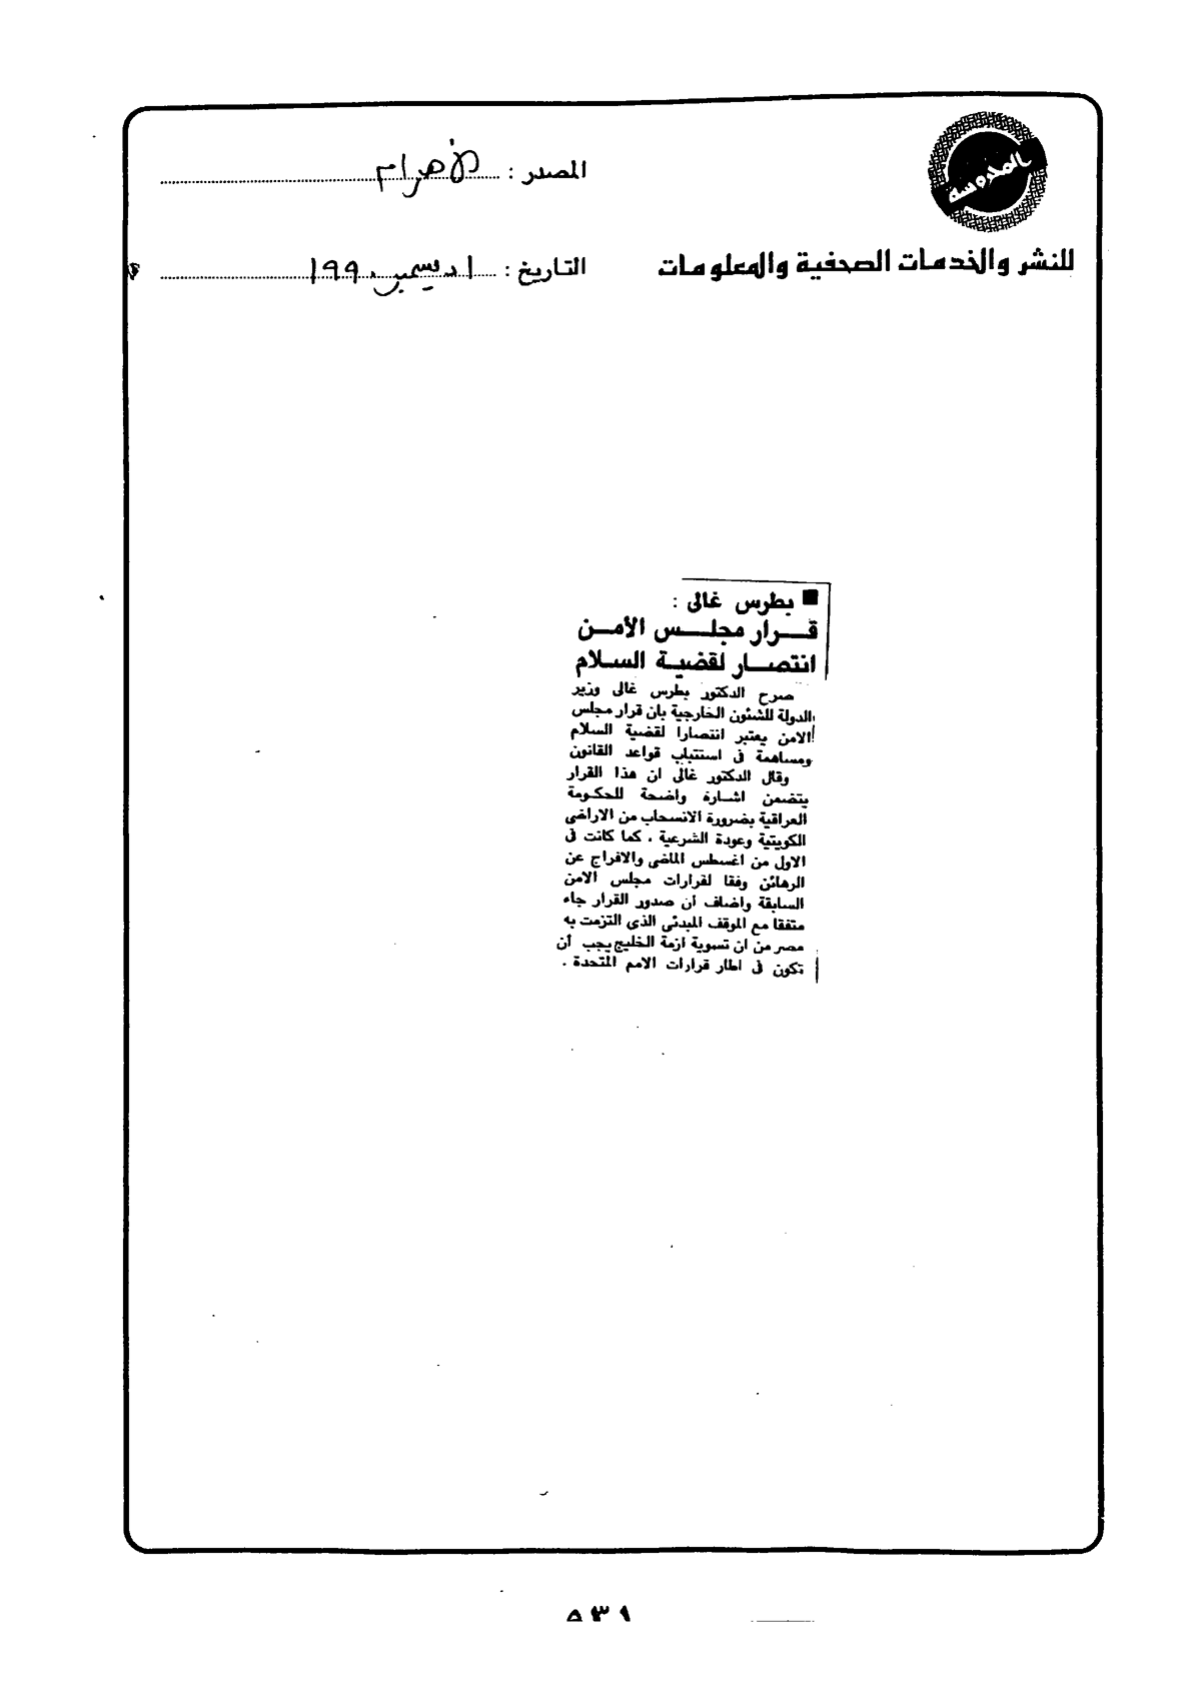 المحروسة
المصدر : الأهرام
للنشر والخدمات الصحفية والمعلومات
التاريخ : ١ ديسمبر ١٩٩٠
■ بطرس غالى :
قرار مجلس الأمن
انتصار لقضية السلام
صرح الدكتور بطرس غالى وزير
الدولة للشئون الخارجية بان قرار مجلس
الامن يعتبر انتصارا لقضية السلام
ومساهمة فى استتباب قواعد القانون
وقال الدكتور غالى ان هذا القرار
يتضمن اشارة واضحة للحكومة
العراقية بضرورة الانسحاب من الاراضى
الكويتية وعودة الشرعية ، كما كانت فى
الاول من اغسطس الماضى والافراج عن
الرهائن وفقا لقرارات مجلس الامن
السابقة واضاف أن صدور القرار جاء
متفقا مع الموقف المبدئى الذى التزمت به
مصر من ان تسوية ازمة الخليج يجب أن
تكون فى اطار قرارات الامم المتحدة .
٥٣١